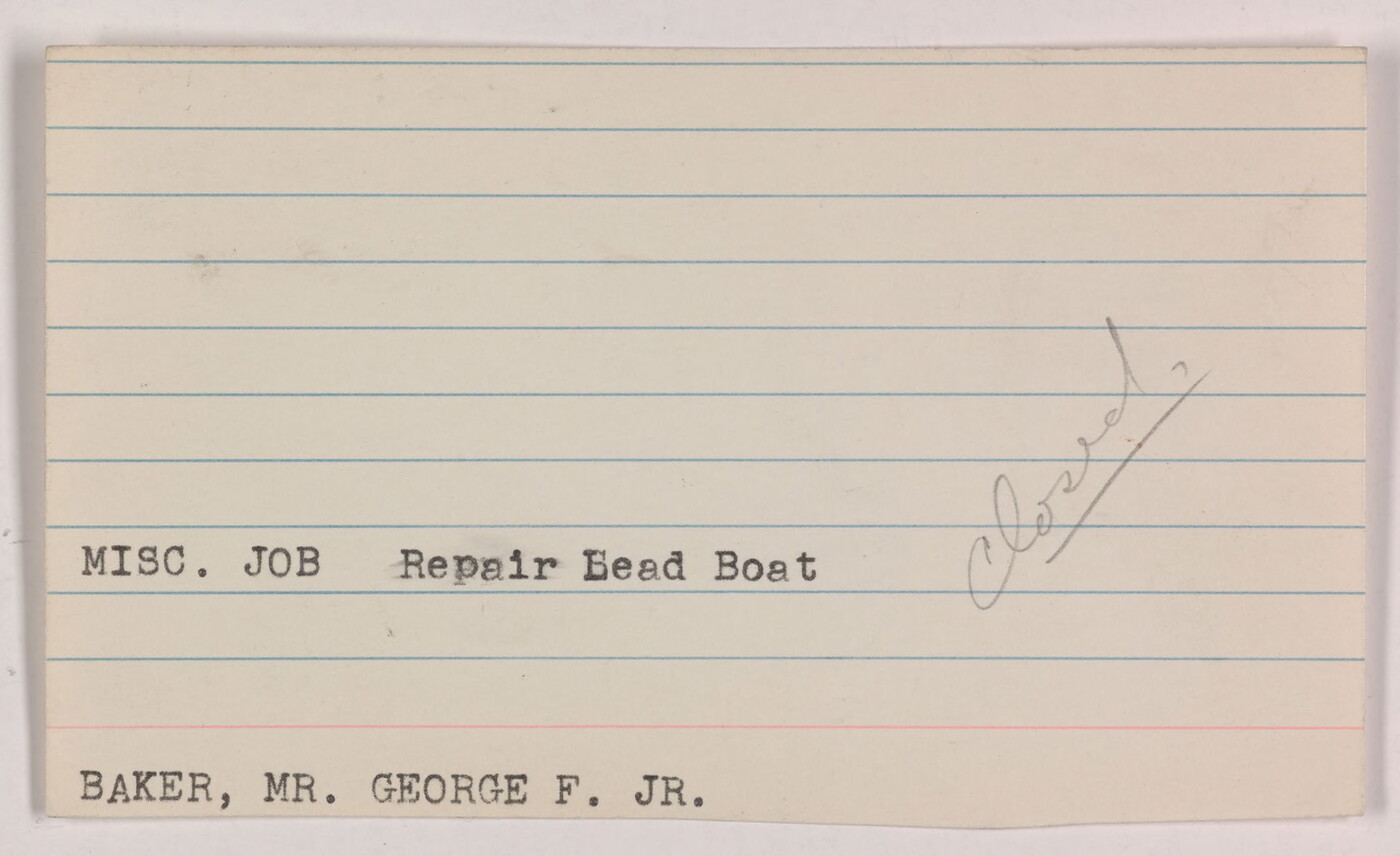 Closed.
MISC. JOB Repair Lead Boat
BAKER, MR. GEORGE F. JR.